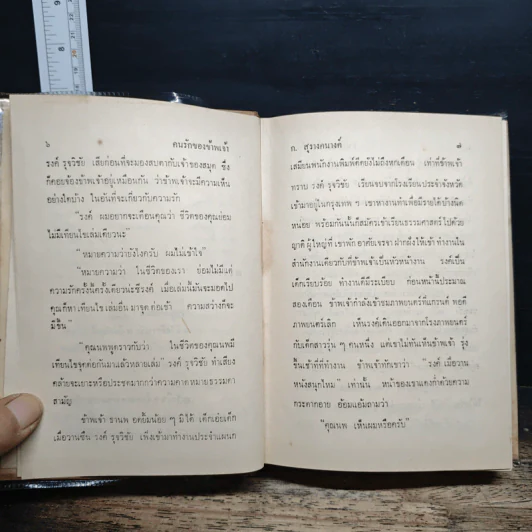 ๖ คนรักของข้าพเจ้า
รงค์ รุจวิชัย เสียก่อนที่จะมองสบตากับเจ้าของสมุด ซึ่ง
ก็คอยจ้องข้าพเจ้าอยู่เหมือนกัน ว่าข้าพเจ้าจะมีความเห็น
อย่างใดบ้าง ในอันที่จะเกี่ยวกับความรัก
“รงค์ ผมอยากจะเตือนคุณว่า ชีวิตของคุณย่อม
ไม่มีเทียนไขเล่มเดียวนะ”
“หมายความว่ายังไงครับ ผมไม่เข้าใจ”
“หมายความว่า ในชีวิตของเรา ย่อมไม่มีแต่
ความรักครั้งนี้ครั้งเดียวนะซีรงค์ เมื่อเล่มนั้นมันจะมอดไป
คุณก็หาเทียนไขเล่มอื่น มาจุดต่อเข้า ความสว่างก็จะ
มีขึ้น”
“คุณนพพูดราวกับว่า ในชีวิตของคุณนพมี
เทียนไขจุดต่อกันมาแล้วหลายเล่ม” รงค์ รุจวิชัย ทำเสียง
คล้ายจะเยาะหรือประชดมากกว่าความคาดหมายธรรมดา
สามัญ
ข้าพเจ้า ธานพ อดยิ้มน้อย ๆ มิได้ เด็กเอ๋ยเด็ก
เมื่อวานซืน รงค์ รุจวิชัย เพิ่งเข้ามาทำงานประจำแผนก
ก. สุรางคนางค์ ๗
เสมียนพนักงานพิมพ์ดีดยังไม่ถึงหกเดือน เท่าที่ข้าพเจ้า
ทราบ รงค์ รุจวิชัย เรียนจบจากโรงเรียนประจำจังหวัด
เข้ามาอยู่ในกรุงเทพ ฯ เขาหางานทำเพื่อมีรายได้บ้างนิด
หน่อย พร้อมกันนั้นก็สมัครเข้าเรียนธรรมศาสตร์ไปด้วย
ญาติผู้ใหญ่ที่เขาพักอาศัยเจรจาฝากฝังให้เข้าทำงานใน
สำนักงานเดียวกับที่ข้าพเจ้าเป็นหัวหน้างาน รงค์เป็น
เด็กเรียบร้อย ทำงานดีมีระเบียบ ก่อนหน้านี้ประมาณ
สองเดือน ข้าพเจ้ากำลังเข้าชมภาพยนตร์ที่แกรนด์ พอดี
ภาพยนตร์เลิก เห็นรงค์เดินออกมาจากโรงภาพยนตร์
กับเด็กสาวรุ่น ๆ คนหนึ่ง แต่เขาไม่ทันเห็นข้าพเจ้า รุ่ง
ขึ้นเช้าที่ที่ทำงาน ข้าพเจ้าทักเขาว่า “รงค์ เมื่อวาน
หนังสนุกไหม” เท่านั้น หน้าของเขาแดงก่ำด้วยความ
กระดากอาย อ้อมแอ้มถามว่า
“คุณนพ เห็นผมหรือครับ”